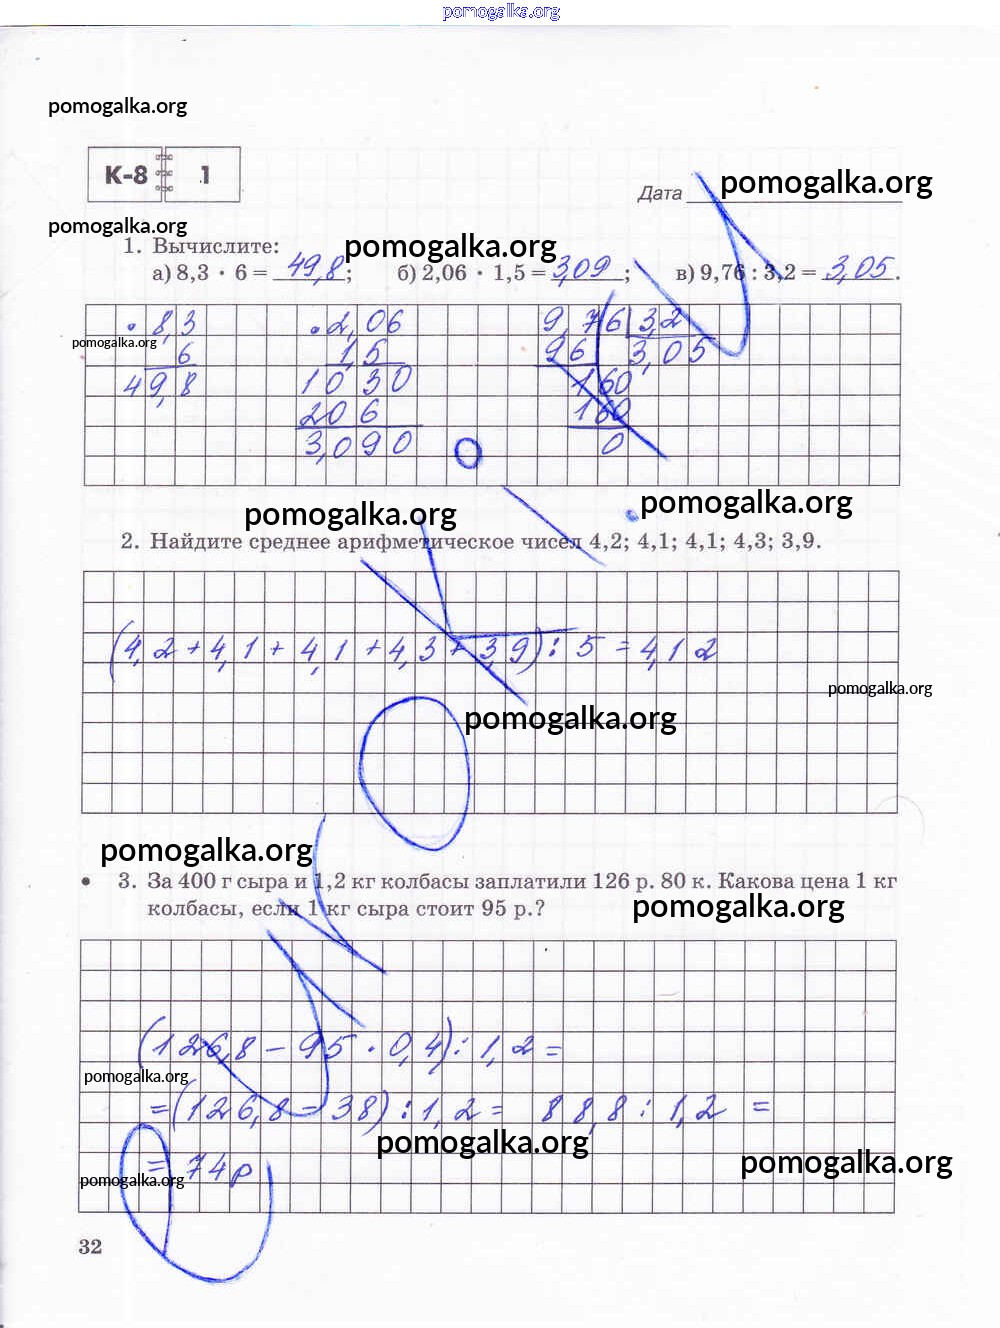 pomogalka.org
pomogalka.org
К-8 1
Дата pomogalka.org
pomogalka.org
1. Вычислите: pomogalka.org
а) 8,3 · 6 = 49,8; б) 2,06 · 1,5 = 3,09; в) 9,76 : 3,2 = 3,05.
· 8,3 · 2,06 9,76 3,2
pomogalka.org 6 1,5 96 3,05
49,8 1030 160
206 160
3,090 0
pomogalka.org pomogalka.org
2. Найдите среднее арифметическое чисел 4,2; 4,1; 4,1; 4,3; 3,9.
(4,2 + 4,1 + 4,1 + 4,3 + 3,9) : 5 = 4,12
pomogalka.org
pomogalka.org
pomogalka.org
• 3. За 400 г сыра и 1,2 кг колбасы заплатили 126 р. 80 к. Какова цена 1 кг
колбасы, если 1 кг сыра стоит 95 р.?
pomogalka.org
(126,8 − 95 · 0,4) : 1,2 =
pomogalka.org
= (126,8 − 38) : 1,2 = 88,8 : 1,2 =
pomogalka.org
pomogalka.org
= 74р
pomogalka.org
32